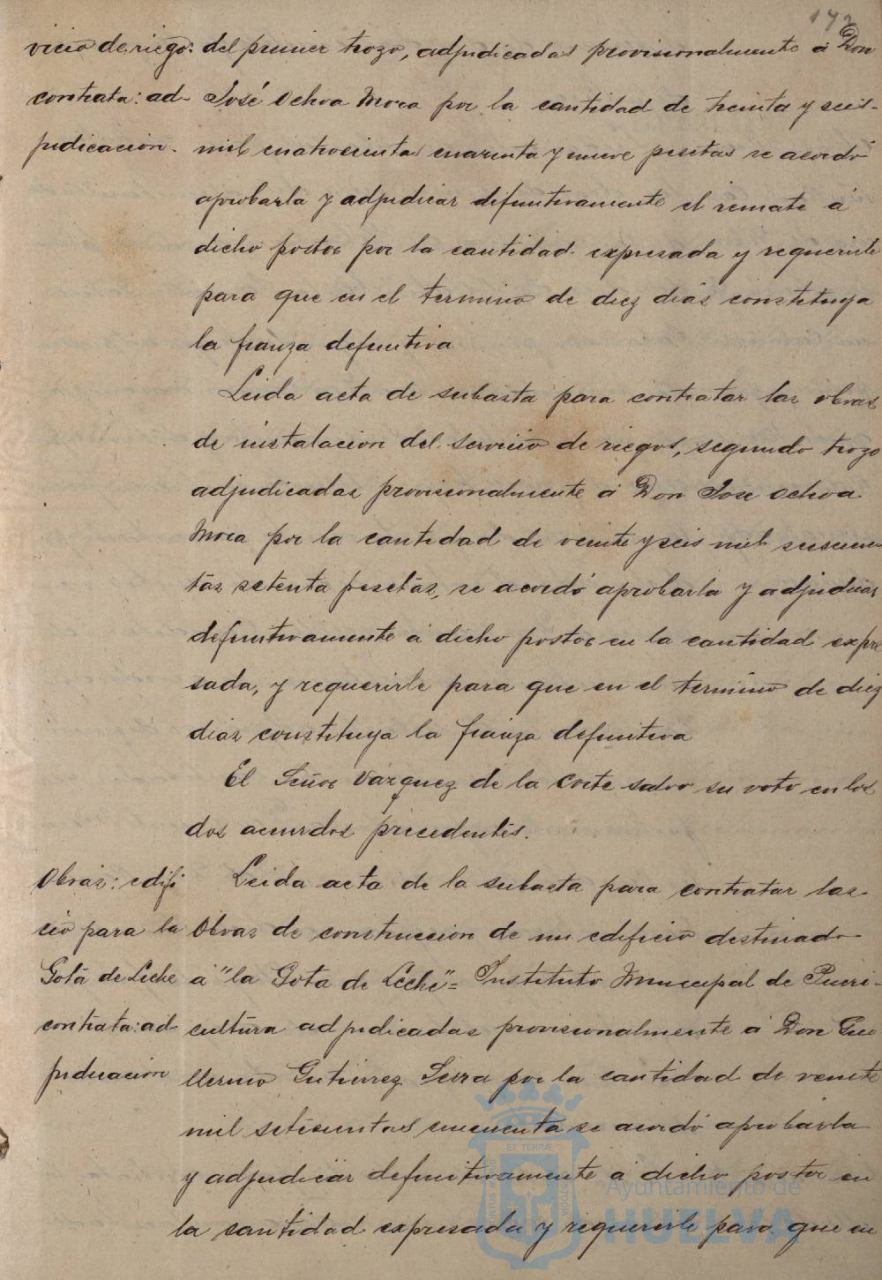 172
vicio de riego: del primer trozo, adjudicadas provisionalmente á Don
contrata: ad- José Ochoa Mora por la cantidad de treinta y seis
judicación. mil cuatrocientas cuarenta y nueve pesetas se acordó
aprobarla y adjudicar definitivamente el remate á
dicho postor por la cantidad expresada y requerirle
para que en el termino de diez dias constituya
la fianza definitiva
Leida acta de subasta para contratar las obras
de instalacion del servicio de riegos, segundo trozo
adjudicadas provisionalmente á Don Jose Ochoa
Mora por la cantidad de veinte y seis mil
tas setenta pesetas, se acordó aprobarla y adjudicar
definitivamente á dicho postor en la cantidad expre
sada, y requerirle para que en el termino de diez
dias constituya la fianza definitiva
El Señor Vázquez de la Corte salvo su voto en los
dos acuerdos precedentes.
Obras: edifi Leida acta de la subasta para contratar las
cio para la Obras de construccion de un edificio destinado
Gota de Leche á "la Gota de Leche" = Instituto Municipal de Pueri-
contrata: ad cultura adjudicadas provisionalmente á Don Gui
judicación llermo Gutierrez Serra por la cantidad de veinte
mil setecientas cincuenta se acordó aprobarla
y adjudicar definitivamente á dicho postor en
la cantidad expresada y requererle para que en
Ayuntamiento de
HUELVA